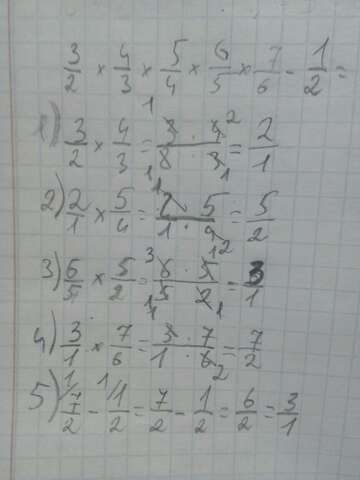 3/2 × 4/3 × 5/4 × 6/5 × 7/6 - 1/2 =
1) 3/2 × 4/3 = 3 · 4 / 8 · 3 = 2/1
2) 2/1 × 5/4 = 2 · 5 / 1 · 4 = 5/2
3) 6/5 × 5/2 = 6 · 5 / 5 · 2 = 3/1
4) 3/1 × 7/6 = 3 · 7 / 1 · 6 = 7/2
5) 7/2 - 1/2 = 7/2 - 1/2 = 6/2 = 3/1